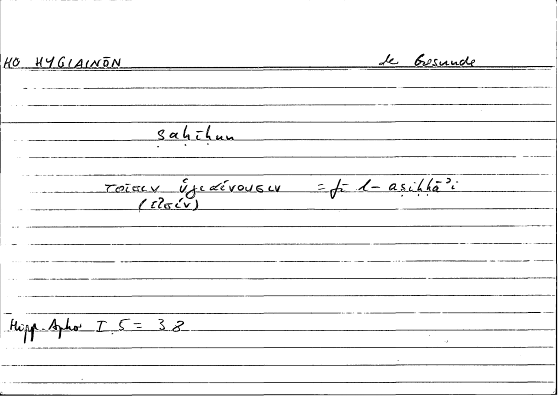 HO HYGIAINŌN de Gesunde
ṣaḥīḥun
τοῖσιν ὑγιαίνουσιν = fī l-aṣiḥḥāʾi
(εἰσίν)
Hipp. Aphor I 5 = 3 8